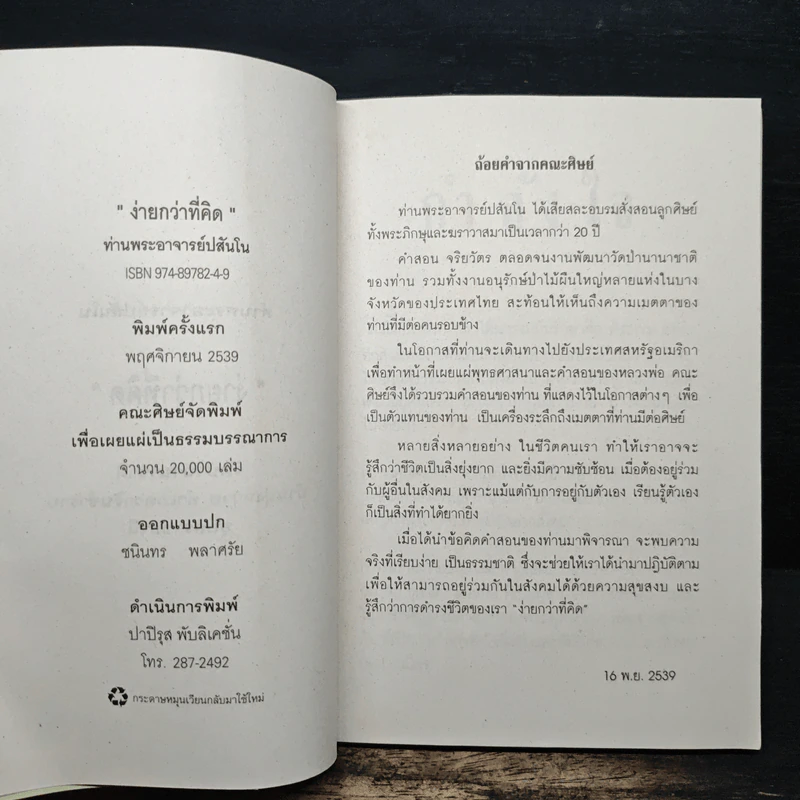 " ง่ายกว่าที่คิด "
ท่านพระอาจารย์ปสันโน
ISBN 974-89782-4-9
พิมพ์ครั้งแรก
พฤศจิกายน 2539
คณะศิษย์จัดพิมพ์
เพื่อเผยแผ่เป็นธรรมบรรณาการ
จำนวน 20,000 เล่ม
ออกแบบปก
ชนินทร พลาศรัย
ดำเนินการพิมพ์
ปาปิรุส พับลิเคชั่น
โทร. 287-2492
กระดาษหมุนเวียนกลับมาใช้ใหม่
ถ้อยคำจากคณะศิษย์
ท่านพระอาจารย์ปสันโน ได้เสียสละอบรมสั่งสอนลูกศิษย์
ทั้งพระภิกษุและฆราวาสมาเป็นเวลากว่า 20 ปี
คำสอน จริยวัตร ตลอดจนงานพัฒนาวัดป่านานาชาติ
ของท่าน รวมทั้งงานอนุรักษ์ป่าไม้ผืนใหญ่หลายแห่งในบาง
จังหวัดของประเทศไทย สะท้อนให้เห็นถึงความเมตตาของ
ท่านที่มีต่อคนรอบข้าง
ในโอกาสที่ท่านจะเดินทางไปยังประเทศสหรัฐอเมริกา
เพื่อทำหน้าที่เผยแผ่พุทธศาสนาและคำสอนของหลวงพ่อ คณะ
ศิษย์จึงได้รวบรวมคำสอนของท่าน ที่แสดงไว้ในโอกาสต่างๆ เพื่อ
เป็นตัวแทนของท่าน เป็นเครื่องระลึกถึงเมตตาที่ท่านมีต่อศิษย์
หลายสิ่งหลายอย่าง ในชีวิตคนเรา ทำให้เราอาจจะ
รู้สึกว่าชีวิตเป็นสิ่งยุ่งยาก และยิ่งมีความซับซ้อน เมื่อต้องอยู่ร่วม
กับผู้อื่นในสังคม เพราะแม้แต่กับการอยู่กับตัวเอง เรียนรู้ตัวเอง
ก็เป็นสิ่งที่ทำได้ยากยิ่ง
เมื่อได้นำข้อคิดคำสอนของท่านมาพิจารณา จะพบความ
จริงที่เรียบง่าย เป็นธรรมชาติ ซึ่งจะช่วยให้เราได้นำมาปฏิบัติตาม
เพื่อให้สามารถอยู่ร่วมกันในสังคมได้ด้วยความสุขสงบ และ
รู้สึกว่าการดำรงชีวิตของเรา "ง่ายกว่าที่คิด"
16 พ.ย. 2539